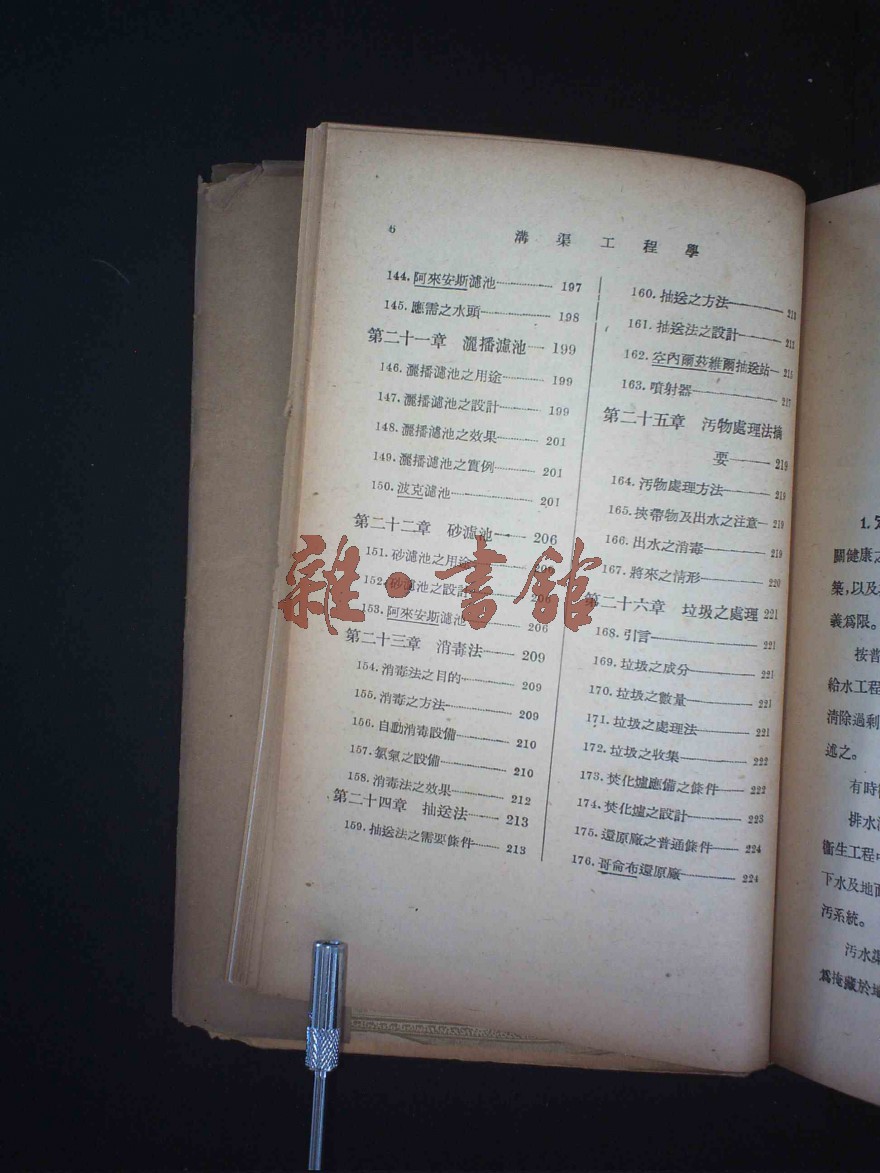 6
溝渠工程學
144. 阿來安斯濾池 197
145. 應需之水頭 198
第二十一章 灑播濾池 199
146. 灑播濾池之用途 199
147. 灑播濾池之設計 199
148. 灑播濾池之效果 201
149. 灑播濾池之實例 201
150. 波克濾池 201
第二十二章 砂濾池 206
151. 砂濾池之用途
152. 砂濾池之設計
153. 阿來安斯濾池 206
第二十三章 消毒法 209
154. 消毒法之目的 209
155. 消毒之方法 209
156. 自動消毒設備 210
157. 氯氣之設備 210
158. 消毒法之效果 212
第二十四章 抽送法 213
159. 抽送法之需要條件 213
160. 抽送之方法
161. 抽送法之設計
162. 空內爾茲維爾抽送站
163. 噴射器 217
第二十五章 汚物處理法摘
要 219
164. 汚物處理方法 219
165. 挾帶物及出水之注意 219
166. 出水之消毒 219
167. 將來之情形 220
第二十六章 垃圾之處理 221
168. 引言 221
169. 垃圾之成分 221
170. 垃圾之數量 221
171. 垃圾之處理法 221
172. 垃圾之收集 222
173. 焚化爐應備之條件 222
174. 焚化爐之設計 223
175. 還原廠之普通條件 224
176. 哥侖布還原廠 224
1.
關健康之
築,以及
義爲限。
按普
給水工程
清除過剩
述之。
有時
排水
衞生工程中
下水及地面
汚系統。
汚水渠
爲掩藏於地
雜·書館